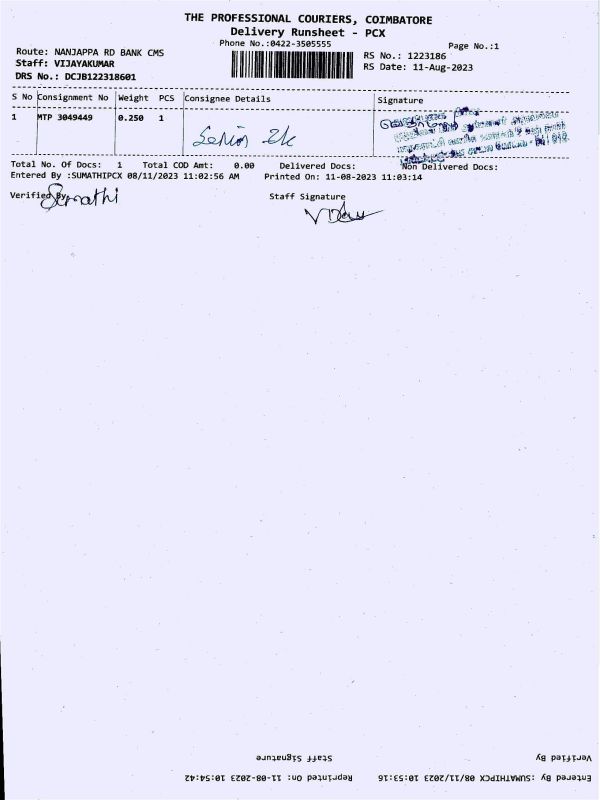 THE PROFESSIONAL COURIERS, COIMBATORE
Delivery Runsheet - PCX
Phone No.:0422-3505555
Page No.:1
Route: NANJAPPA RD BANK CMS
Staff: VIJAYAKUMAR
DRS No.: DCJB122318601
RS No.: 1223186
RS Date: 11-Aug-2023
S No Consignment No Weight PCS Consignee Details Signature
1 MTP 3049449 0.250 1
Total No. Of Docs: 1 Total COD Amt: 0.00 Delivered Docs: Non Delivered Docs:
Entered By :SUMATHIPCX 08/11/2023 11:02:56 AM Printed On: 11-08-2023 11:03:14
Verified By Sumathi
Staff Signature
Verified By Staff Signature
Entered By: SUMATHIPCX 08/11/2023 10:53:16 Reprinted On: 11-08-2023 10:54:42